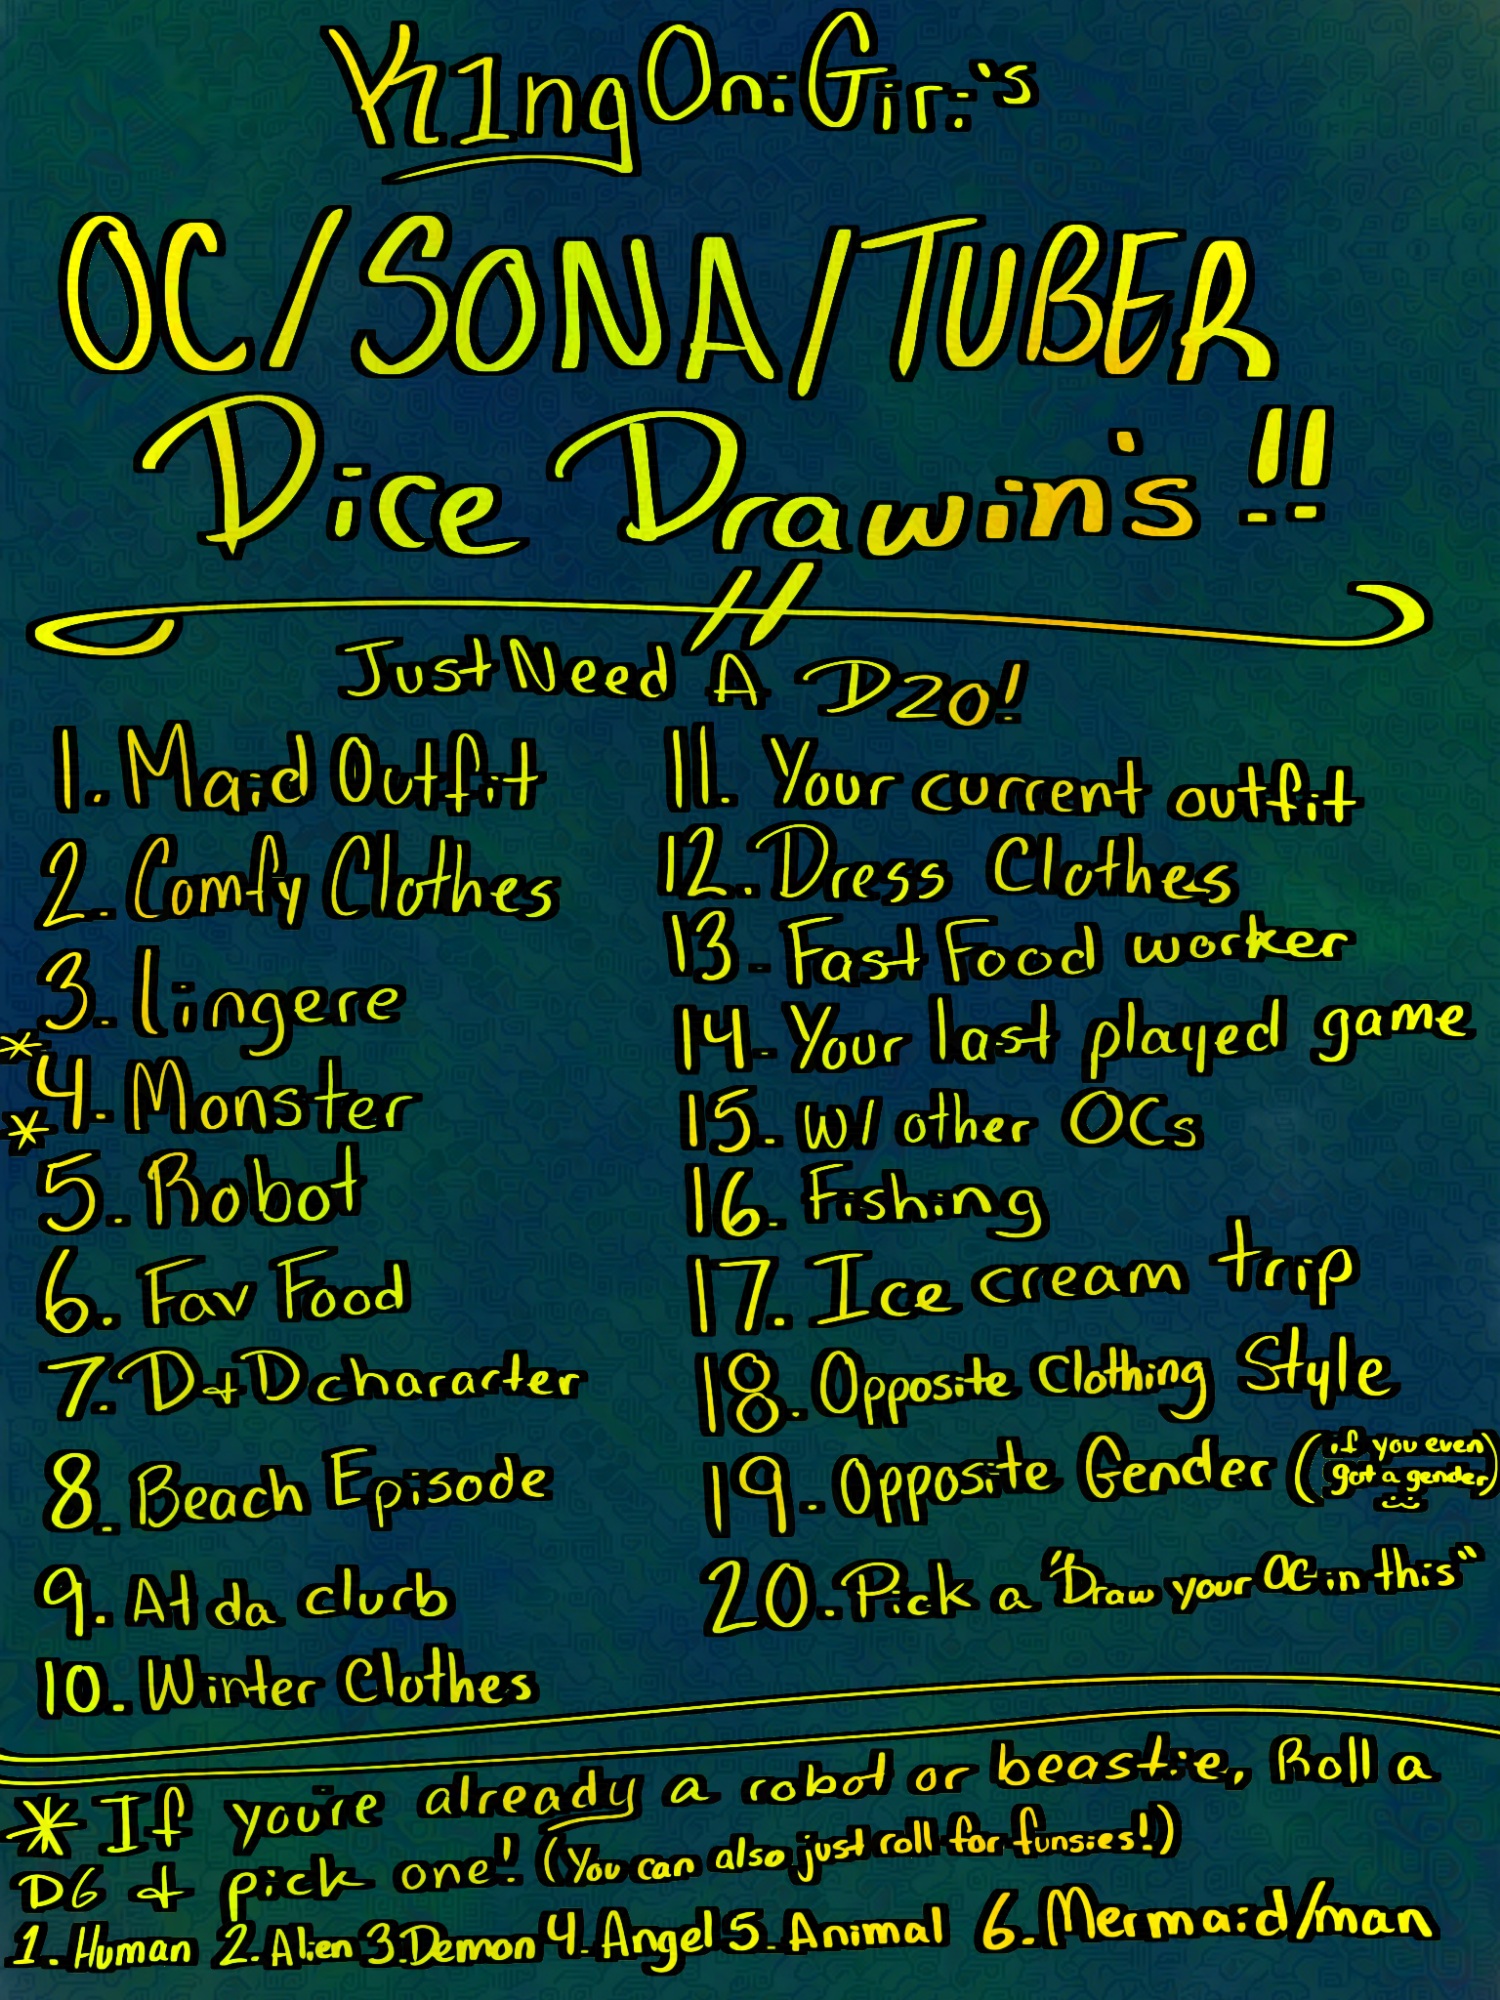 K1ngOniGiri's
OC/SONA/TUBER
Dice Drawin's!!
Just Need A D20!
1. Maid Outfit
2. Comfy Clothes
3. Lingere
*
4. Monster
*
5. Robot
6. Fav Food
7. D&D character
8. Beach Episode
9. At da clurb
10. Winter Clothes
11. Your current outfit
12. Dress Clothes
13. Fast Food worker
14. Your last played game
15. w/ other OCs
16. Fishing
17. Ice cream trip
18. Opposite Clothing Style
19. Opposite Gender (if you even
got a gender)
20. Pick a "Draw your OC in this"
* If you're already a robot or beastie, Roll a
D6 & pick one! (You can also just roll for funsies!)
1. Human 2. Alien 3. Demon 4. Angel 5. Animal 6. Mermaid/man